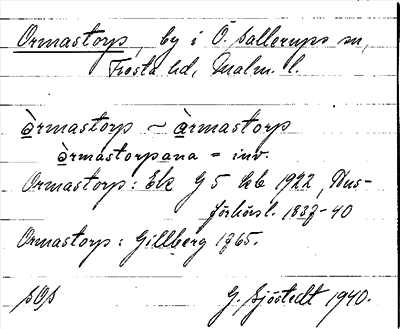 Ormastorp, by i Ö. Sallerups sn,
Frosta hd, Malm. l.
òrmastorp ~ òrmastorp
òrmastorpana = inv.
Ormastorp: Ek G 5 kb 1922, Hus-
förhörsl. 1837-40
Ormastorp: Gillberg 1765.
SOS G. Sjöstedt 1940.